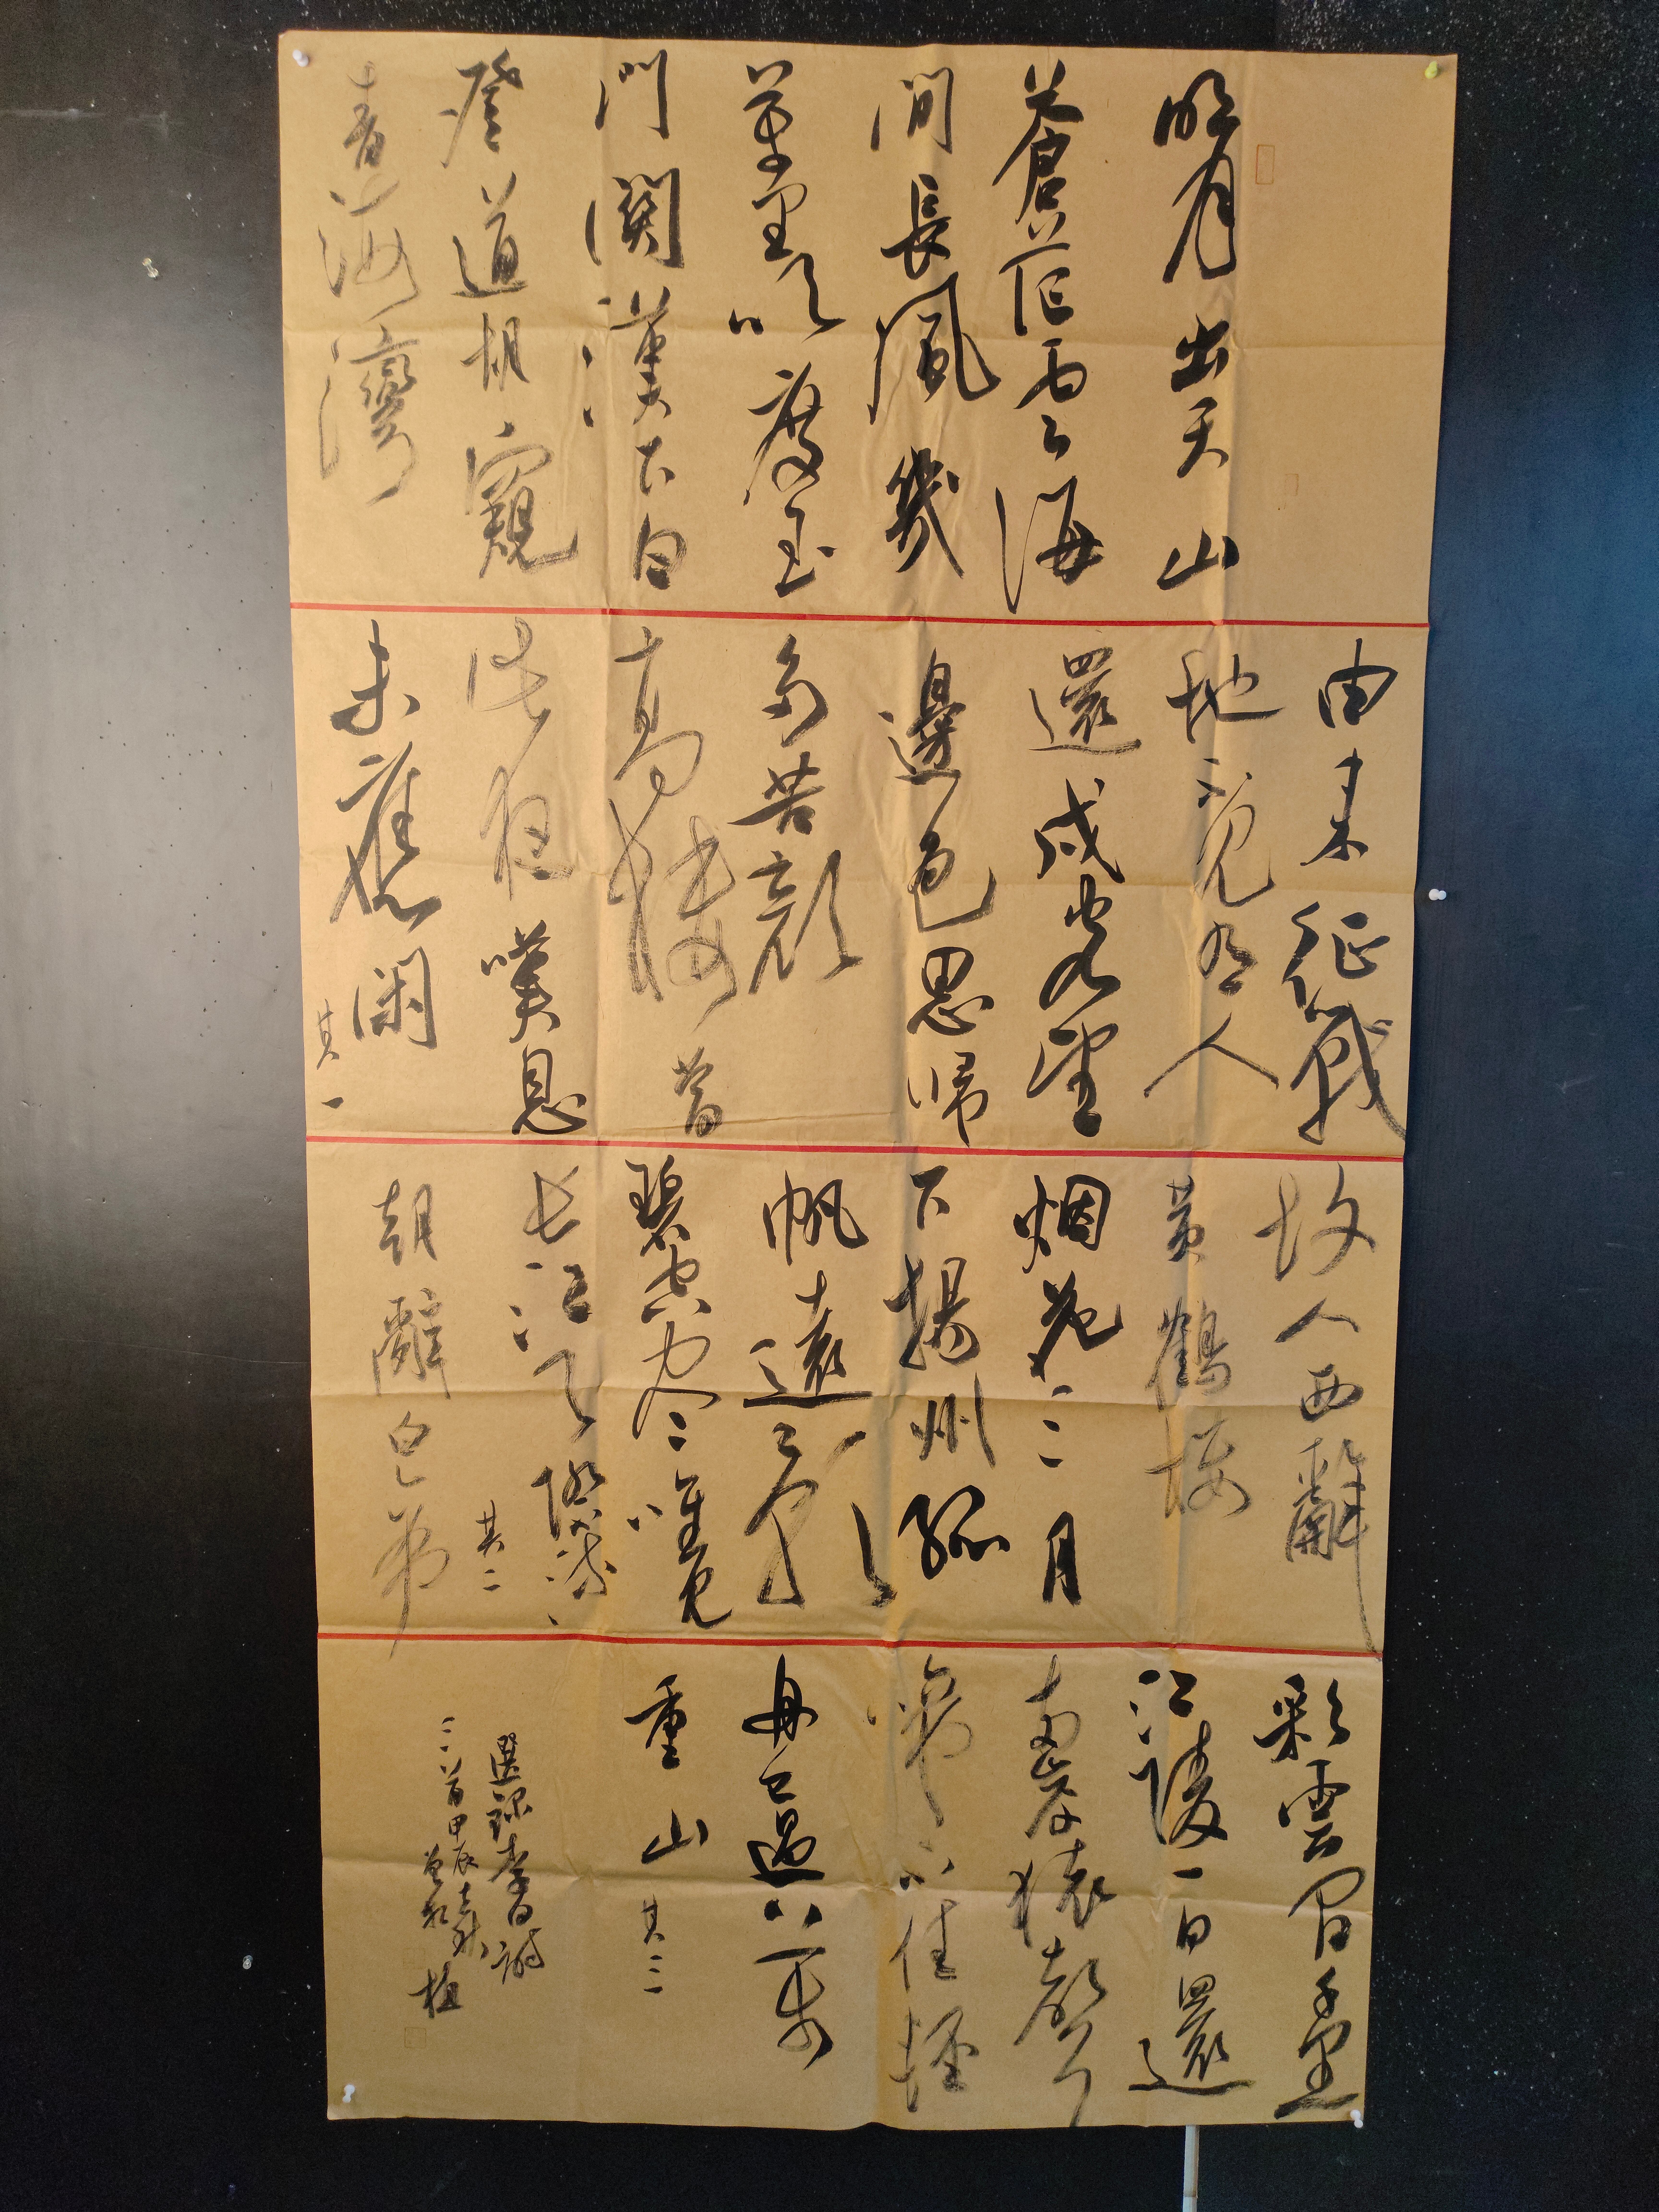 明月出天山
蒼茫雲海
間長風幾
萬里吹度玉
門關漢下白
登道胡窺
青海灣
由來征戰
地不見有人
還戍客望
邊色思歸
多苦顏
高樓當
此夜嘆息
未應閑
其一
故人西辭
黃鶴樓
烟花三月
下揚州孤
帆遠影
碧空尽唯見
长江天際流
其二
朝辭白帝
彩雲間千里
江陵一日還
兩岸猿聲
啼不住輕
舟已過萬
重山 其三
選録李白詩
三首甲辰